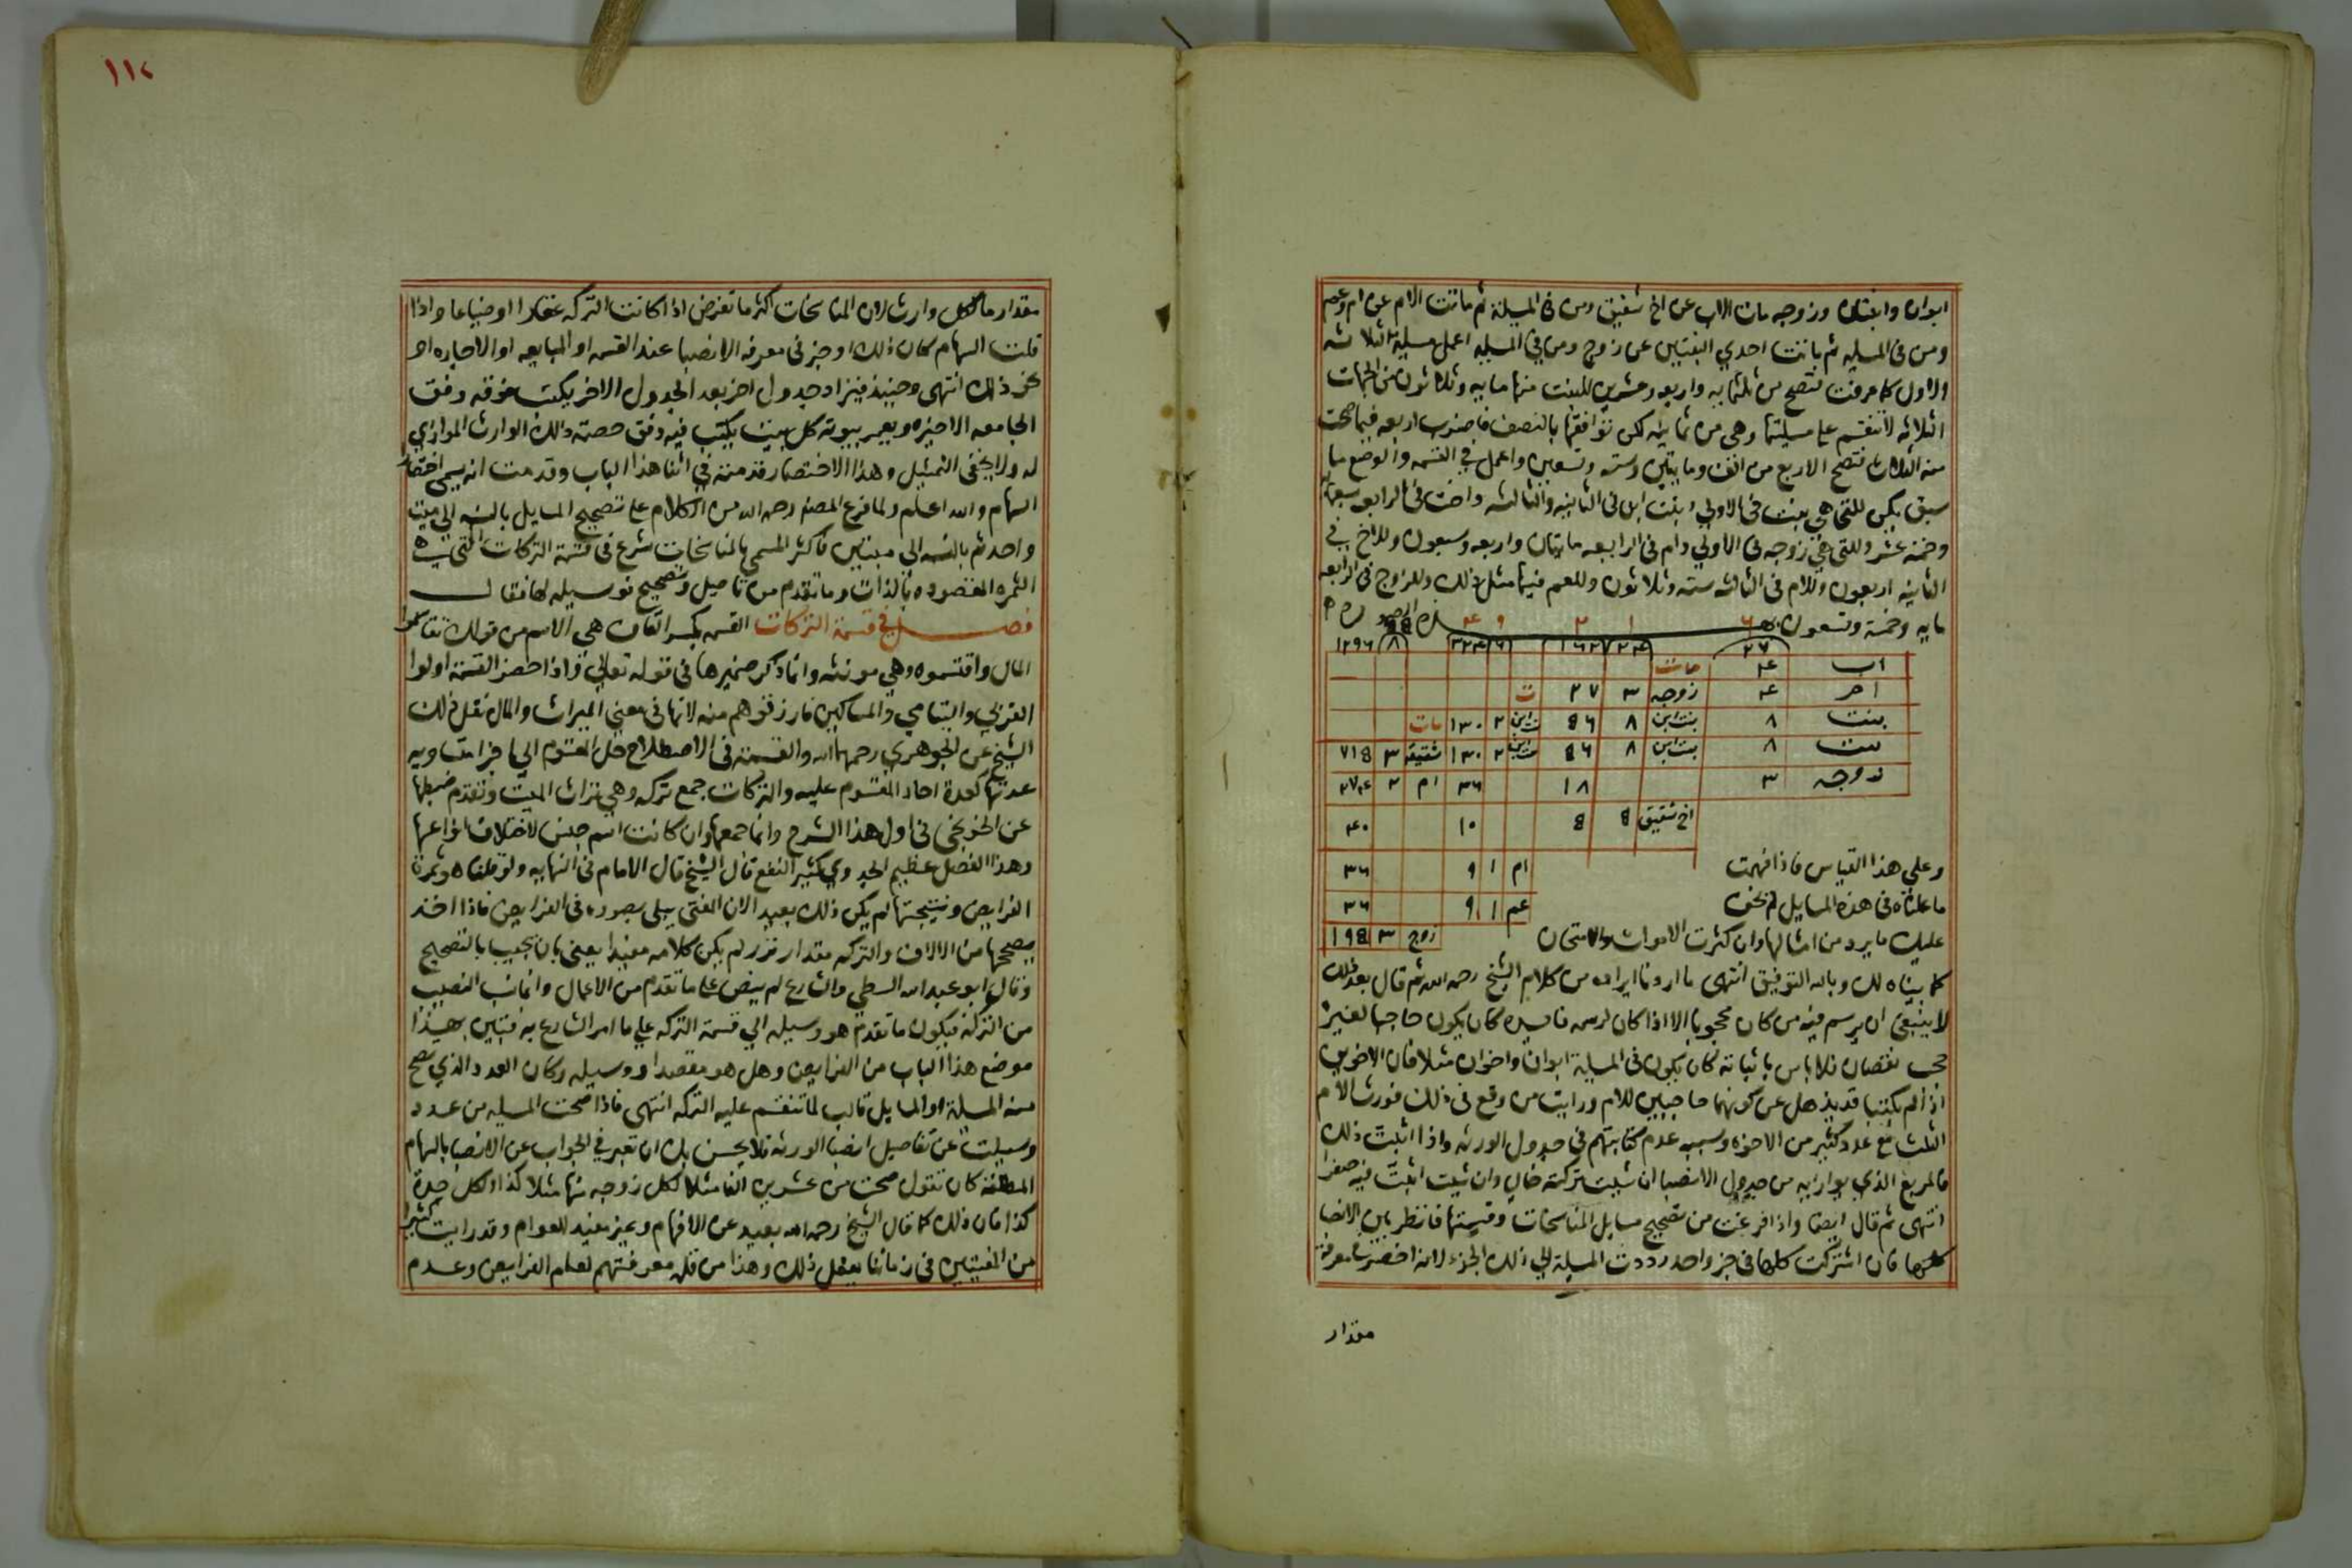 ابوان وابنتان وزوجه مات الاب عن اخ شقيق ومن في المسيلة ثم ماتت الام عن ام وعم
ومن في المسيله ثم ماتت احدي البنتين عن زوج ومن في المسيله اعمل مسيلة الثلاثه
الاول كما عرفت فتصح من ثلثمايه واربعه وعشرين للبنت منها مايه وثلاثون من الجهات
الثلاثه لا تنقسم علي مسيلتها وهي من ثمانيه لكن توافقها بالنصف فاضرب اربعه فيما صحت
منه الثلاث فتصح الاربع من الف ومايتين وسته وتسعين واعمل في القسمه والوضع ما
سبق يكن للتي هي بنت في الاولي وبنت ابن في الثانيه والثالثه واخت في الرابعه سبعمايه
وخمسة عشر وللتي هي زوجه في الاولي وام في الرابعه مايتان واربعه وسبعون وللاخ في
الثانيه اربعون وللام في الثالثه سته وثلاثون وللعم فيها مثل ذلك وللزوج في الرابعه
مايه وخمسة وتسعون
٦ ١ ٢ ٩ ٤
٢٧ ٢٤ ١٦٢ ٦ ٣٢٤ ٨ ١٢٩٦
اب ٤ مات
ام ٤ زوجه ٣ ٢٧ ت
بنت ٨ بنت ابن ٨ ٥٦ بنت ابن ٢ ١٣٠ مات
بنت ٨ بنت ابن ٨ ٥٦ بنت ابن ٢ ١٣٠ شقيقة ٣ ٧١٥
زوجه ٣ ١٨ ٣٦ ام ٢ ٢٧٤
اخ شقيق ٥ ٥ ١٠ ٤٠
ام ١ ٩ ٣٦
عم ١ ٩ ٣٦
زوج ٣ ١٩٥
وعلي هذا القياس فاذا فهمت
ما علمناه في هذه المسايل لم تخف
عليك ما يرد من امثالها وان كثرت الاموات والامتحان
كما بيناه لك وبالله التوفيق انتهى ما اردنا ايراده من كلام الشيخ رحمه الله ثم قال بعد ذلك
لا ينبغي ان يرسم فيه من كان محجوبا الا اذا كان لرسمه فايده كان يكون حاجبا لغيره
حجب نقصان فلا باس باثباته كان يكون في المسيلة ابوان واخوان مثلا فان الاخوين
اذا لم يكتبا قد يذهل عن كونهما حاجبين للام ورايت من وقع في ذلك فورث الام
الثلث مع عدد كثير من الاخوه وسببه عدم كتابتهم في جدول الورثه واذا اثبت ذلك
فالمربع الذي يوازيه من جدول الانصبا ان شيت تركته خال وان شيت اثبت فيه صفرا
انتهى ثم قال ايضا واذا فرغت من تصحيح مسايل المناسخات وقسمتها فانظر بين الانصبا
كلها فان اشتركت كلها في جزء واحد رددت المسيلة الي ذلك الجزء لانه اخصر في معرفة
مقدار
١١٢
مقدار ما لكل وارث لان المناسخات اكثر ما تعرض اذا كانت التركه عقارا او ضياعا واذا
قلت السهام كان ذلك اوجز في معرفه الانصبا عند القسمه او المبايعه او الاجاره او
غير ذلك انتهى وحينيذ فيزاد جدول اخر بعد الجدول الاخر يكتب فوقه وفق
الجامعه الاخيره ويعمر بيوته كل بيت يكتب فيه وفق حصته ذلك الوارث الموازي
له ولا يخفى التمثيل وهذا الاختصار قدمته في اثنا هذا الباب وقدمت انه يسمى اختصار
السهام والله اعلم ولما فرغ المصنف رحمه الله من الكلام على تصحيح المسايل بالنسبه الي ميت
واحد ثم بالنسبه الى ميتين فاكثر المسمي بالمناسخات شرع في قسمة التركات التي هي
الثمره المقصوده بالذات وما تقدم من تاصيل وتصحيح فوسيله لها فقال
فصل في قسمة التركات القسمه بكسر القاف هي الاسم من قولك تقاسموا
المال واقتسموه وهي مونثه وانما ذكر ضميرها في قوله تعالي واذا حضر القسمة اولوا
القربي واليتامي والمساكين فارزقوهم منه لانها في معني الميراث والمال نقل ذلك
الشيخ عن الجوهري رحمهما الله والقسمة في الاصطلاح حل المقسوم الي اجزا متساويه
عدتها كعدة احاد المقسوم عليه والتركات جمع تركه وهي تراث الميت وتقدم ضبطها
عن الخونجي في اول هذا الشرح وانما جمعها وان كانت اسم جنس لاختلاف انواعها
وهذا الفصل عظيم الجدوي كثير النفع قال الشيخ قال الامام في النهايه ولو قلنا هو ثمرة
الفرايض ونتيجتها لم يكن ذلك بعيدا لان المفتي يبلى بصوره في الفرايض فاذا اخذ
يصححها من الالاف والتركه مقدار نزر لم يكن كلامه مفيدا يعني بان يجيب بالتصحيح
وقال ابو عبد الله السطي والشارع لم ينص على ما تقدم من الاعمال وانما نسب النصيب
من التركه فيكون ما تقدم هو وسيله الي قسمة التركه علي ما امر الشارع به فتبين بهذا
موضع هذا الباب من الفرايض وهل هو مقصد او وسيله وكان العدد الذي تصح
منه المسيلة او المسايل قالب لما تنقسم عليه التركه انتهى فاذا صحت المسيله من عدد
وسيلت عن تفاصيل انصبا الورثه فلا يحسن بك ان تعبر في الجواب عن الانصبا بالسهام
المطلقه كان تقول صحت من عشرين الفا مثلا لكل زوجه منها مثلا كذا ولكل جدة
كذا فان ذلك كما قال الشيخ رحمه الله بعيد عن الافهام وغير مفيد للعوام وقد رايت كثيرا
من المفتيين في زماننا يفعل ذلك وهذا من قلة معرفتهم لعلم الفرايض وعدم